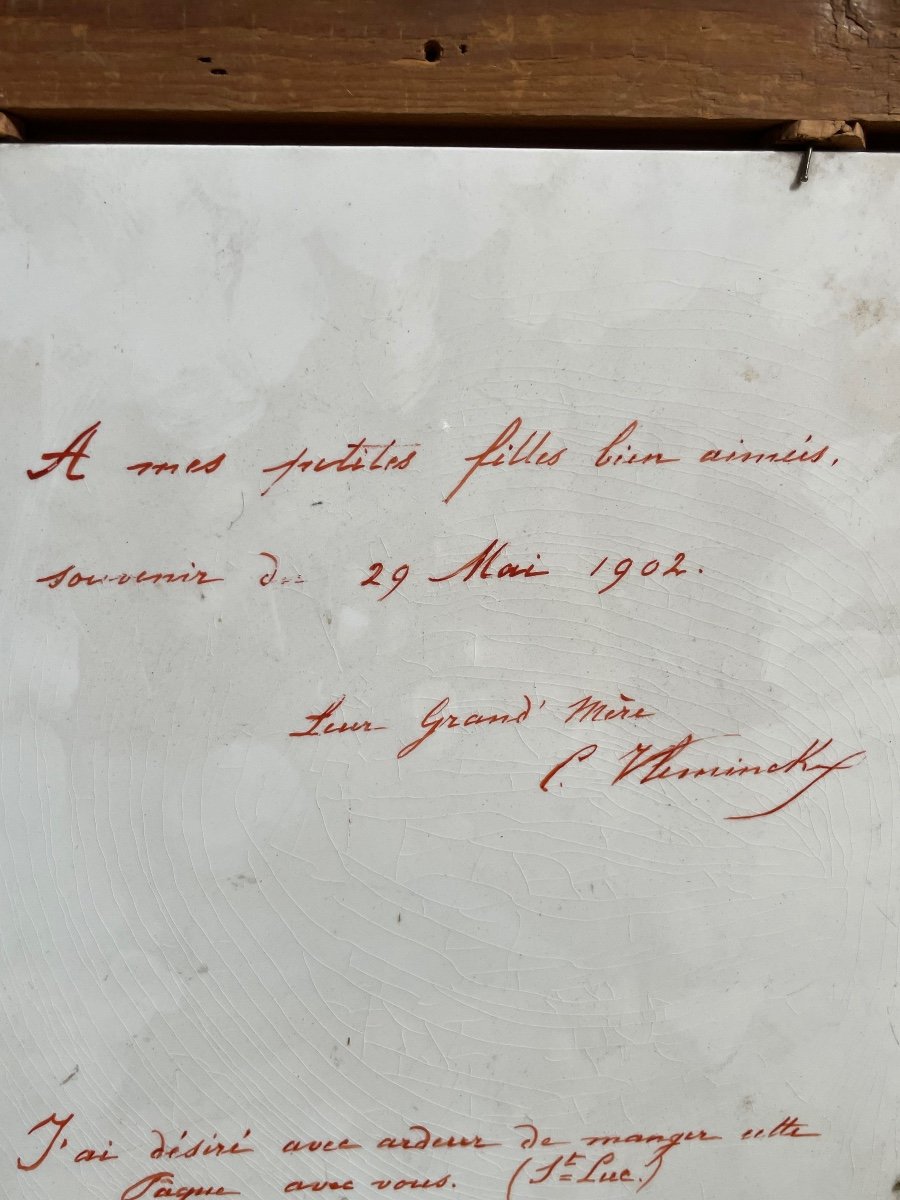 A mes petites filles bien aimées,
souvenir du 29 Mai 1902.
Leur Grand' Mère
C. Vleminckx
J'ai désiré avec ardeur de manger cette
Pâque avec vous. (St Luc.)